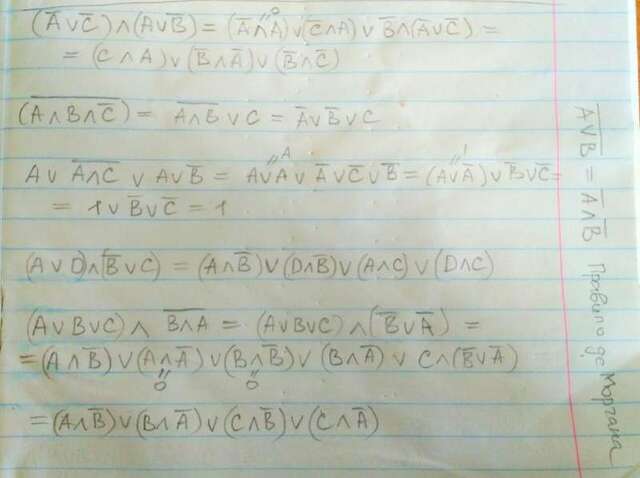 (A̅∨C̅)∧(A∨B̅) = (A̅∧A)∨(C̅∧A)∨ B̅∧(A̅∨C̅) =
0
= (C∧A)∨(B̅∧A̅)∨(B̅∧C̅)
(A̅∧̅B̅∧̅C̅) = A̅∧̅B̅ ∨ C = A̅∨B̅∨C
A∨ A̅∧̅C̅ ∨ A∨B̅ = A∨A ∨ A̅∨C̅∨B̅ = (A∨A̅)∨B̅∨C̅ =
A
1
= 1∨B̅∨C̅ = 1
(A∨D)∧(B̅∨C) = (A∧B̅)∨(D∧B̅)∨(A∧C)∨(D∧C)
(A∨B∨C)∧ B̅∧̅A̅ = (A∨B∨C)∧(B̅∨A̅) =
=(A∧B̅)∨(A∧A̅)∨(B∧B̅)∨(B∧A̅)∨ C∧(B̅∨A̅)
0 0
=(A∧B̅)∨(B∧A̅)∨(C∧B̅)∨(C∧A̅)
A̅∨̅B̅ = A̅∧B̅ Правило де Моргана